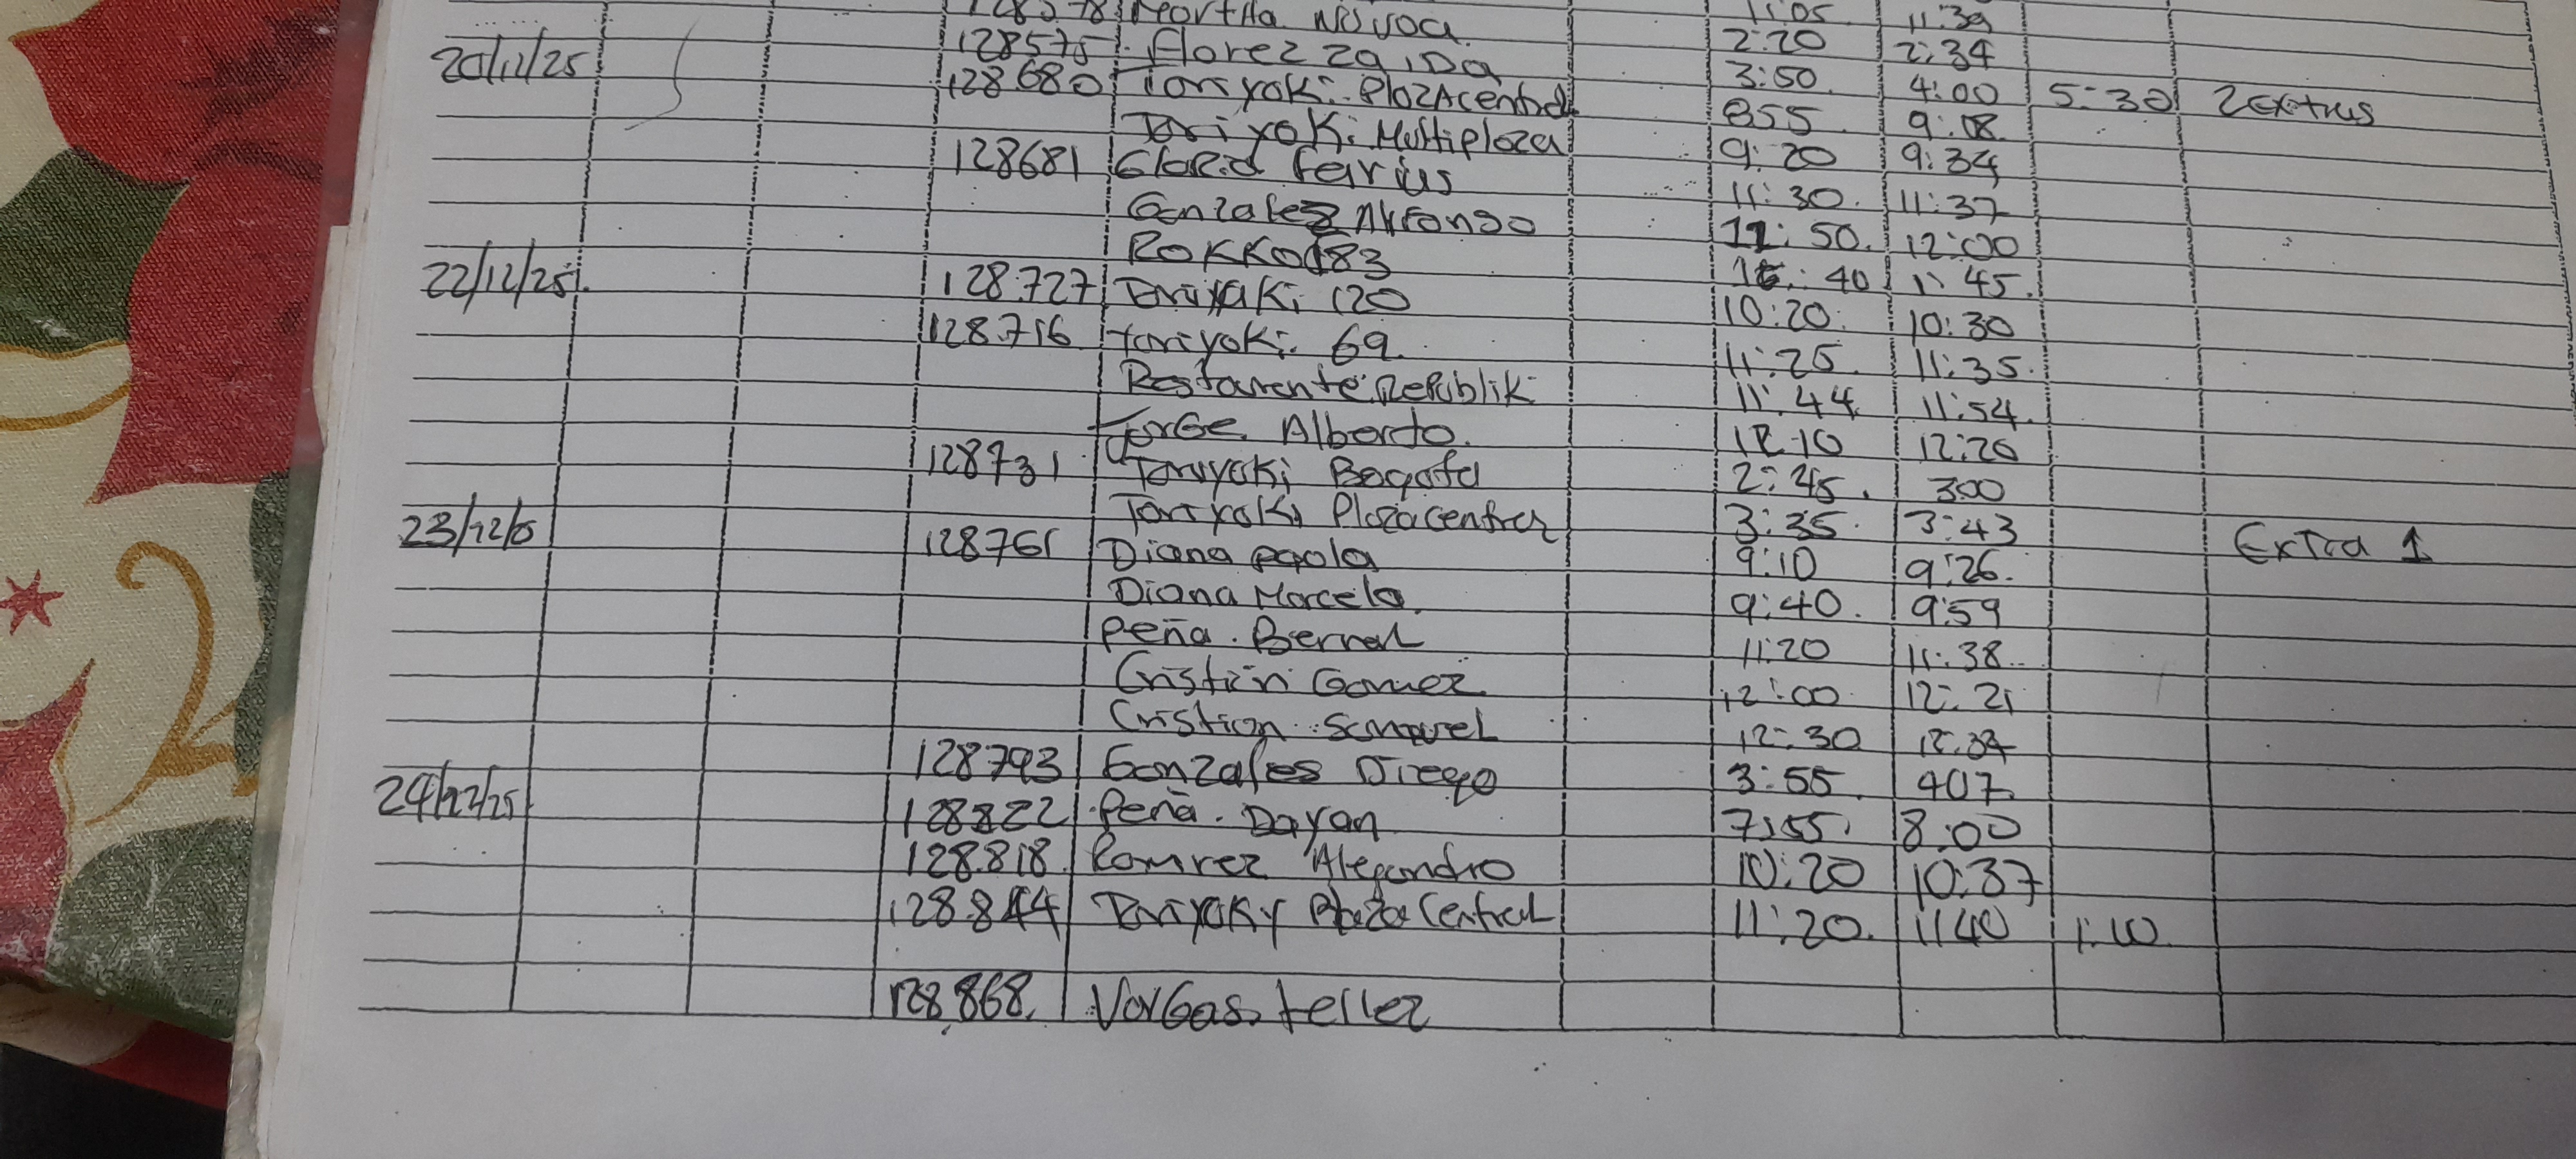 128578 Martha Novoa 11:05 11:39
128575 Florez Zaida 2:20 2:34
20/12/25 128680 Toriyoki Plozacentral 3:50 4:00 5:30 2 extras
Toriyoki Multiploza 855 9:08
128681 Gloria farius 9:20 9:34
Gonzalez Alfonso 11:30 11:37
ROKKO 183 11:50 12:00
22/12/25 128727 Toriyaki 120 1:40 1:45
128716 toriyoki 69 10:20 10:30
Restaurente Republik 11:25 11:35
Jorge Alberto 11:44 11:54
128731 Toriyoki Bogota 12:10 12:20
Toriyoki Plozacentral 2:45 300
23/12/ 128761 Diana paola 3:35 3:43 Extra 1
Diana Marcela 9:10 9:26
peña Bernal 9:40 9:59
Cristian Gomez 11:20 11:38
Cristian Samquel 12:00 12:21
128793 Gonzales Diego 12:30 12:34
24/12/25 128822 peña Dayan 3:55 407
128.818 Ramirez Alejandro 7:55 8:00
128.844 Toriyoky Plaza Central 10:20 10:37
11:20 1140 1:10
128.868 Vargas teller